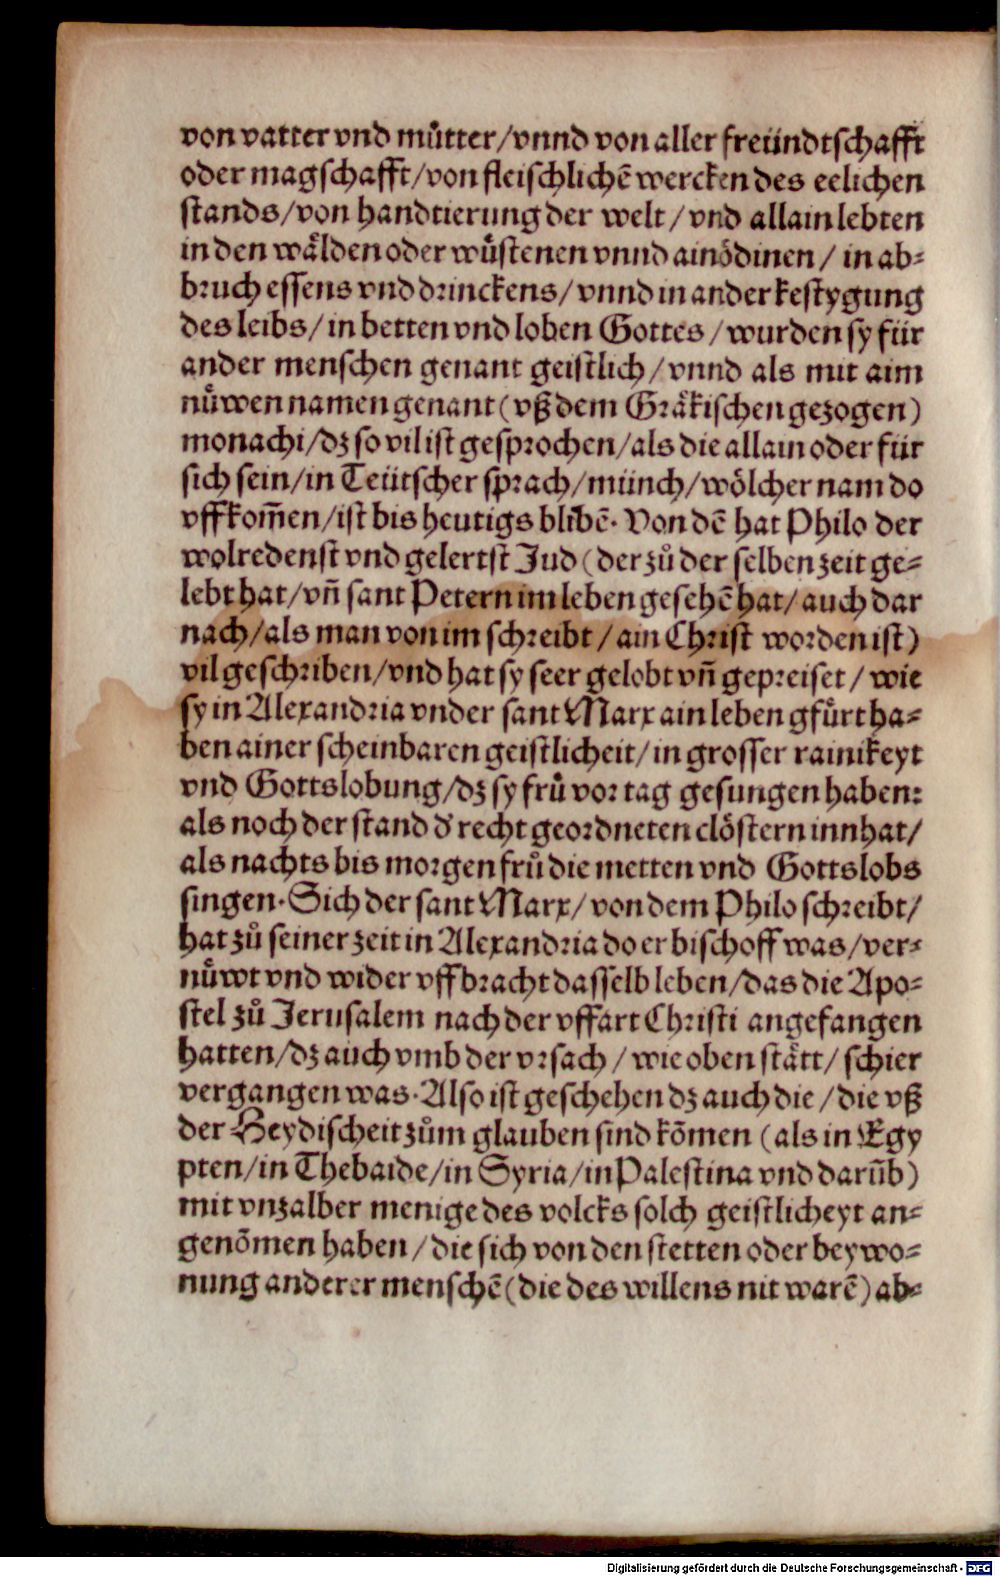 von vatter vnd můtter/vnnd von aller freündtschafft
oder magschafft/von fleischlichē wercken des eelichen
stands/von handtierung der welt/vnd allain lebten
in den wälden oder wuͤstenen vnnd ainödinen/ in ab⸗
bruch essens vnd drinckens/vnnd in ander kestygung
des leibs/in betten vnd loben Gottes/wurden sy für
ander menschen genant geistlich/vnnd als mit aim
nuͤwen namen genant(vß dem Gräkischen gezogen)
monachi/dz so vil ist gesprochen/als die allain oder für
sich sein/in Teütscher sprach/münch/wölcher nam do
vffkom̄en/ist bis heutigs blibē. Von dē hat Philo der
wolredenst vnd gelertst Jud(der zů der selben zeit ge⸗
lebt hat/vn̄ sant Petern im leben gesehē hat/auch dar
nach/als man von im schreibt/ain Christ worden ist)
vil geschriben/vnd hat sy seer gelobt vn̄ gepreiset/wie
sy in Alexandria vnder sant Marx ain leben gfuͤrt ha⸗
ben ainer scheinbaren geistlicheit/in grosser rainikeyt
vnd Gottslobung/dz sy fruͤ vor tag gesungen haben:
als noch der stand d' recht geordneten clöstern innhat/
als nachts bis morgen fruͤ die metten vnd Gottslobs
singen. Sich der sant Marx/von dem Philo schreibt/
hat zů seiner zeit in Alexandria do er bischoff was/ver⸗
nuͤwt vnd wider vffbracht dasselb leben/das die Apo⸗
stel zů Jerusalem nach der vffart Christi angefangen
hatten/dz auch vmb der vrsach/wie oben stätt/schier
vergangen was. Also ist geschehen dz auch die/die vß
der Heydischeit zům glauben sind kōmen (als in Egy
pten/in Thebaide/in Syria/in Palestina vnd darūb)
mit vnzalber menige des volcks solch geistlicheyt an⸗
genōmen haben/die sich von den stetten oder beywo⸗
nung anderer menschē(die des willens nit warē)ab⸗
Digitalisierung gefördert durch die Deutsche Forschungsgemeinschaft - DFG